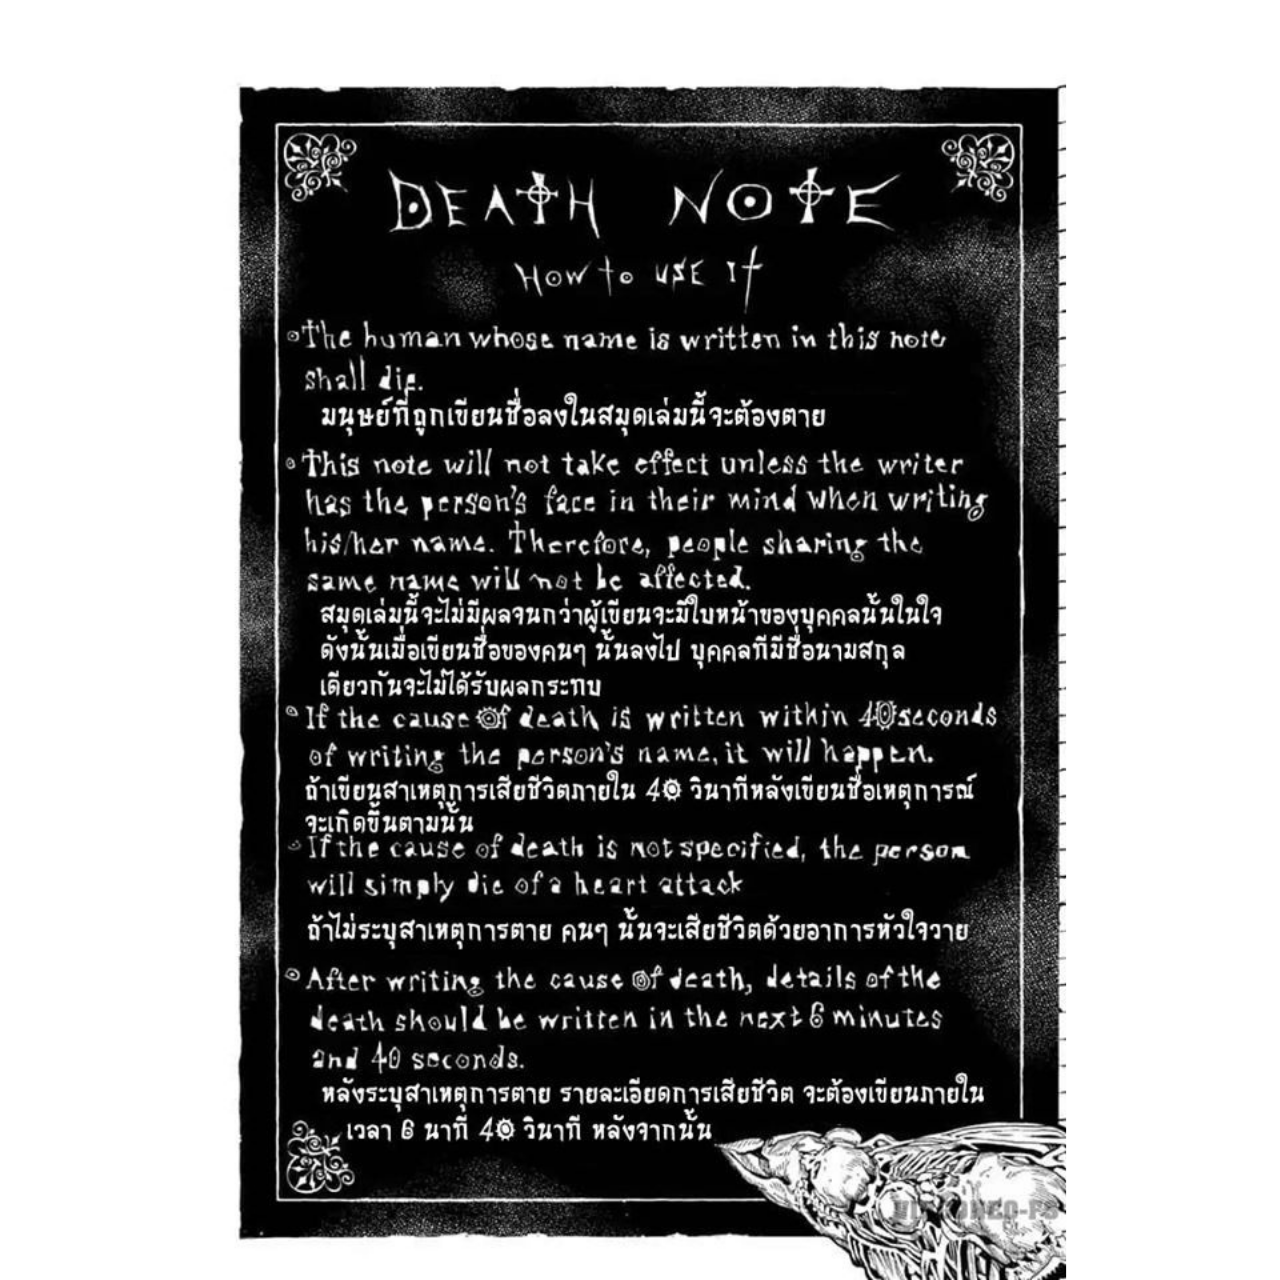 DEATH NOTE
HOW to USE IT
The human whose name is written in this note
shall die.
มนุษย์ที่ถูกเขียนชื่อลงในสมุดเล่มนี้จะต้องตาย
This note will not take effect unless the writer
has the person's face in their mind when writing
his/her name. Therefore, people sharing the
same name will not be affected.
สมุดเล่มนี้จะไม่มีผลจนกว่าผู้เขียนจะมีใบหน้าของบุคคลนั้นในใจ
ดังนั้นเมื่อเขียนชื่อของคนๆ นั้นลงไป บุคคลที่มีชื่อนามสกุล
เดียวกันจะไม่ได้รับผลกระทบ
If the cause of death is written within 40 seconds
of writing the person's name, it will happen.
ถ้าเขียนสาเหตุการเสียชีวิตภายใน 40 วินาทีหลังเขียนชื่อเหตุการณ์
จะเกิดขึ้นตามนั้น
If the cause of death is not specified, the person
will simply die of a heart attack
ถ้าไม่ระบุสาเหตุการตาย คนๆ นั้นจะเสียชีวิตด้วยอาการหัวใจวาย
After writing the cause of death, details of the
death should be written in the next 6 minutes
and 40 seconds.
หลังระบุสาเหตุการตาย รายละเอียดการเสียชีวิต จะต้องเขียนภายใน
เวลา 6 นาที 40 วินาที หลังจากนั้น